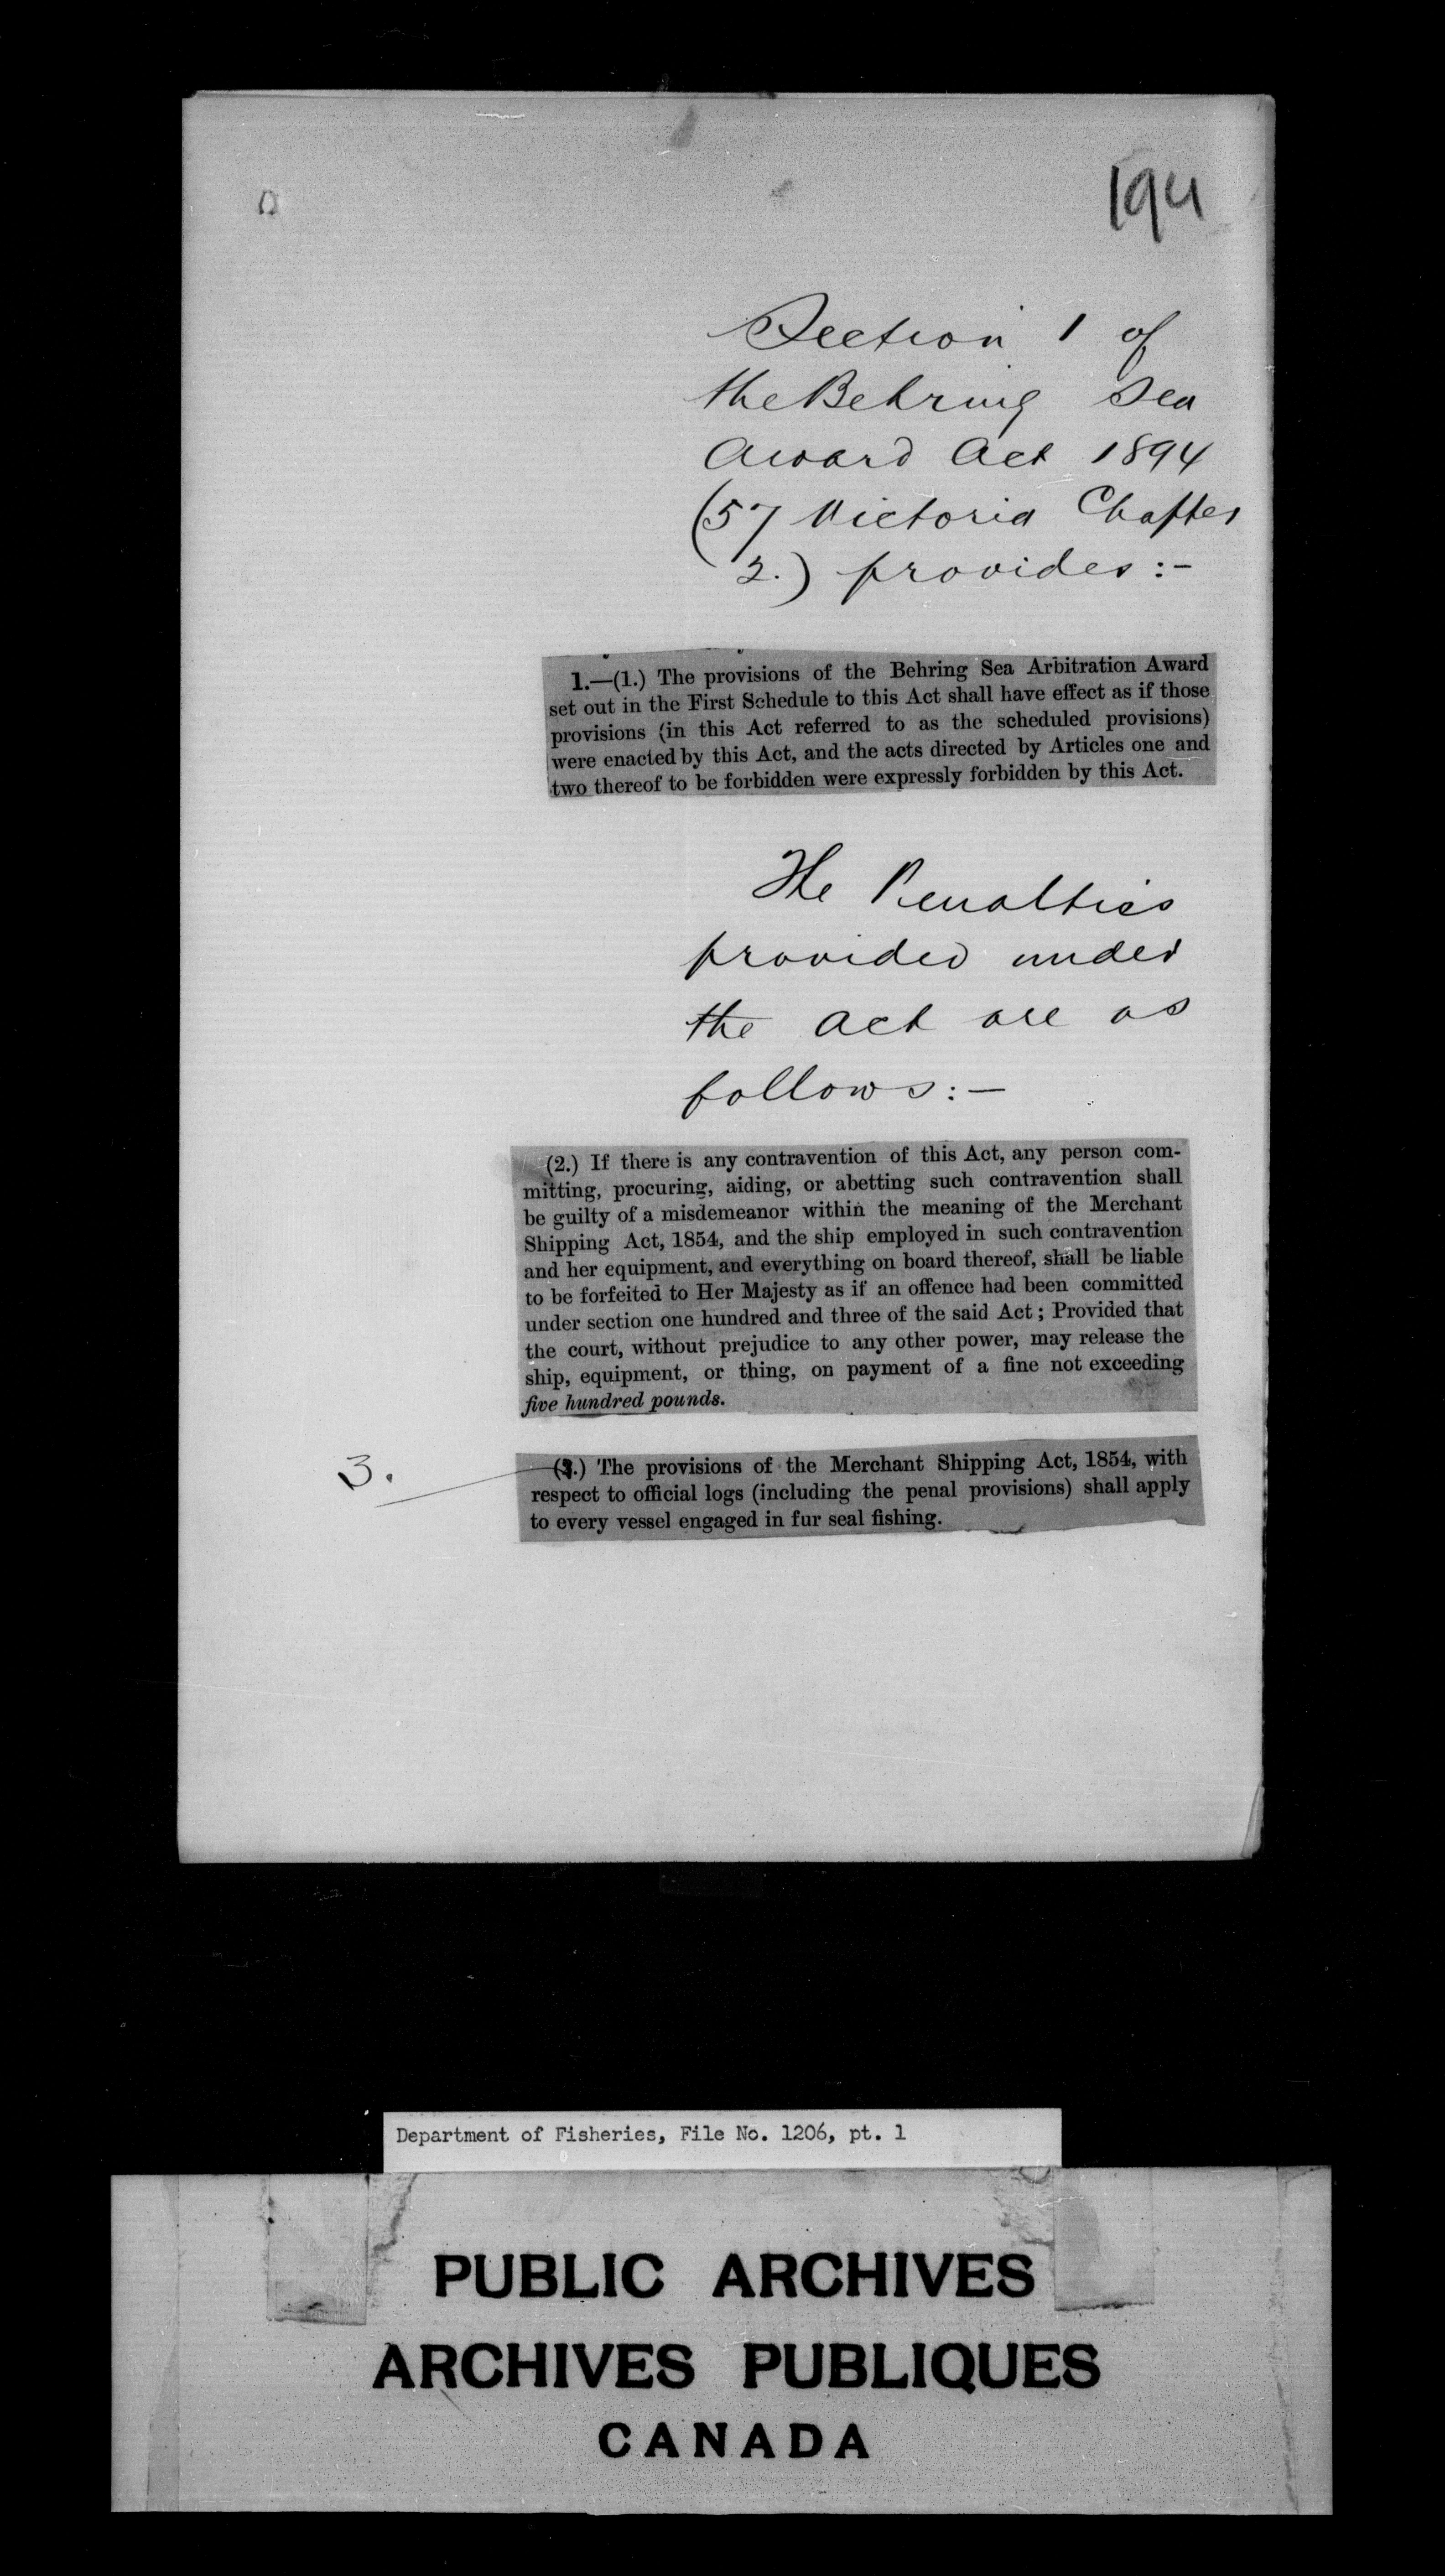 194
Section 1 of
the Behring Sea
Award Act 1894
(57 Victoria Chapter
2.) provides:-
1.—(1.) The provisions of the Behring Sea Arbitration Award
set out in the First Schedule to this Act shall have effect as if those
provisions (in this Act referred to as the scheduled provisions)
were enacted by this Act, and the acts directed by Articles one and
two thereof to be forbidden were expressly forbidden by this Act.
The Penalties
provided under
the Act are as
follows:—
(2.) If there is any contravention of this Act, any person com-
mitting, procuring, aiding, or abetting such contravention shall
be guilty of a misdemeanor within the meaning of the Merchant
Shipping Act, 1854, and the ship employed in such contravention
and her equipment, and everything on board thereof, shall be liable
to be forfeited to Her Majesty as if an offence had been committed
under section one hundred and three of the said Act; Provided that
the court, without prejudice to any other power, may release the
ship, equipment, or thing, on payment of a fine not exceeding
five hundred pounds.
3.
The provisions of the Merchant Shipping Act, 1854, with
respect to official logs (including the penal provisions) shall apply
to every vessel engaged in fur seal fishing.
Department of Fisheries, File No. 1206, pt. 1
PUBLIC ARCHIVES
ARCHIVES PUBLIQUES
CANADA